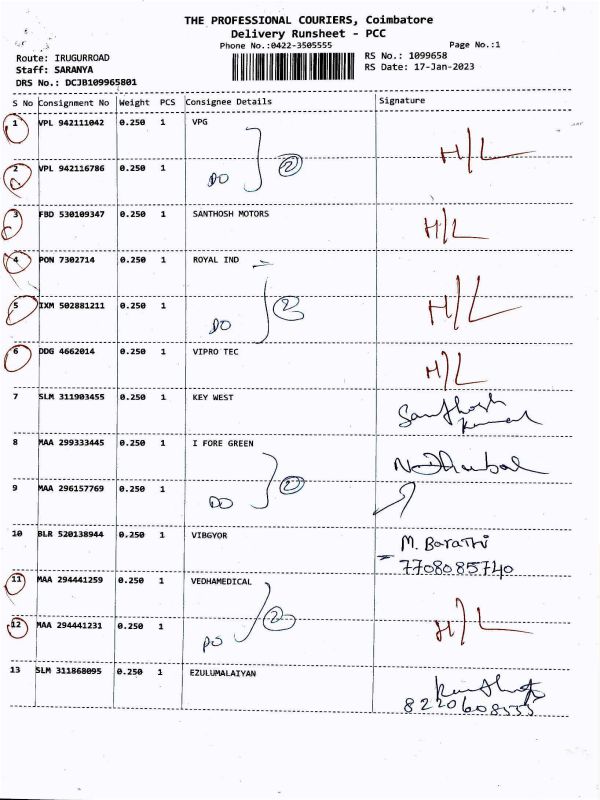 THE PROFESSIONAL COURIERS, Coimbatore
Delivery Runsheet - PCC
Phone No.:0422-3505555 Page No.:1
Route: IRUGURROAD RS No.: 1099658
Staff: SARANYA RS Date: 17-Jan-2023
DRS No.: DCJB109965801
S No Consignment No Weight PCS Consignee Details Signature
1 VPL 942111042 0.250 1 VPG
H/L
2 VPL 942116786 0.250 1
DO 2
3 FBD 530109347 0.250 1 SANTHOSH MOTORS
H/L
4 PON 7302714 0.250 1 ROYAL IND
5 IXM 502881211 0.250 1 H/L
DO 2
6 DDG 4662014 0.250 1 VIPRO TEC
H/L
7 SLM 311903455 0.250 1 KEY WEST
Santhosh
Kumar
8 MAA 299333445 0.250 1 I FORE GREEN
9 MAA 296157769 0.250 1
DO 2
10 BLR 520138944 0.250 1 VIBGYOR M. Barathi
7708085740
11 MAA 294441259 0.250 1 VEDHAMEDICAL
12 MAA 294441231 0.250 1 H/L
DO 2
13 SLM 311868095 0.250 1 EZULUMALAIYAN